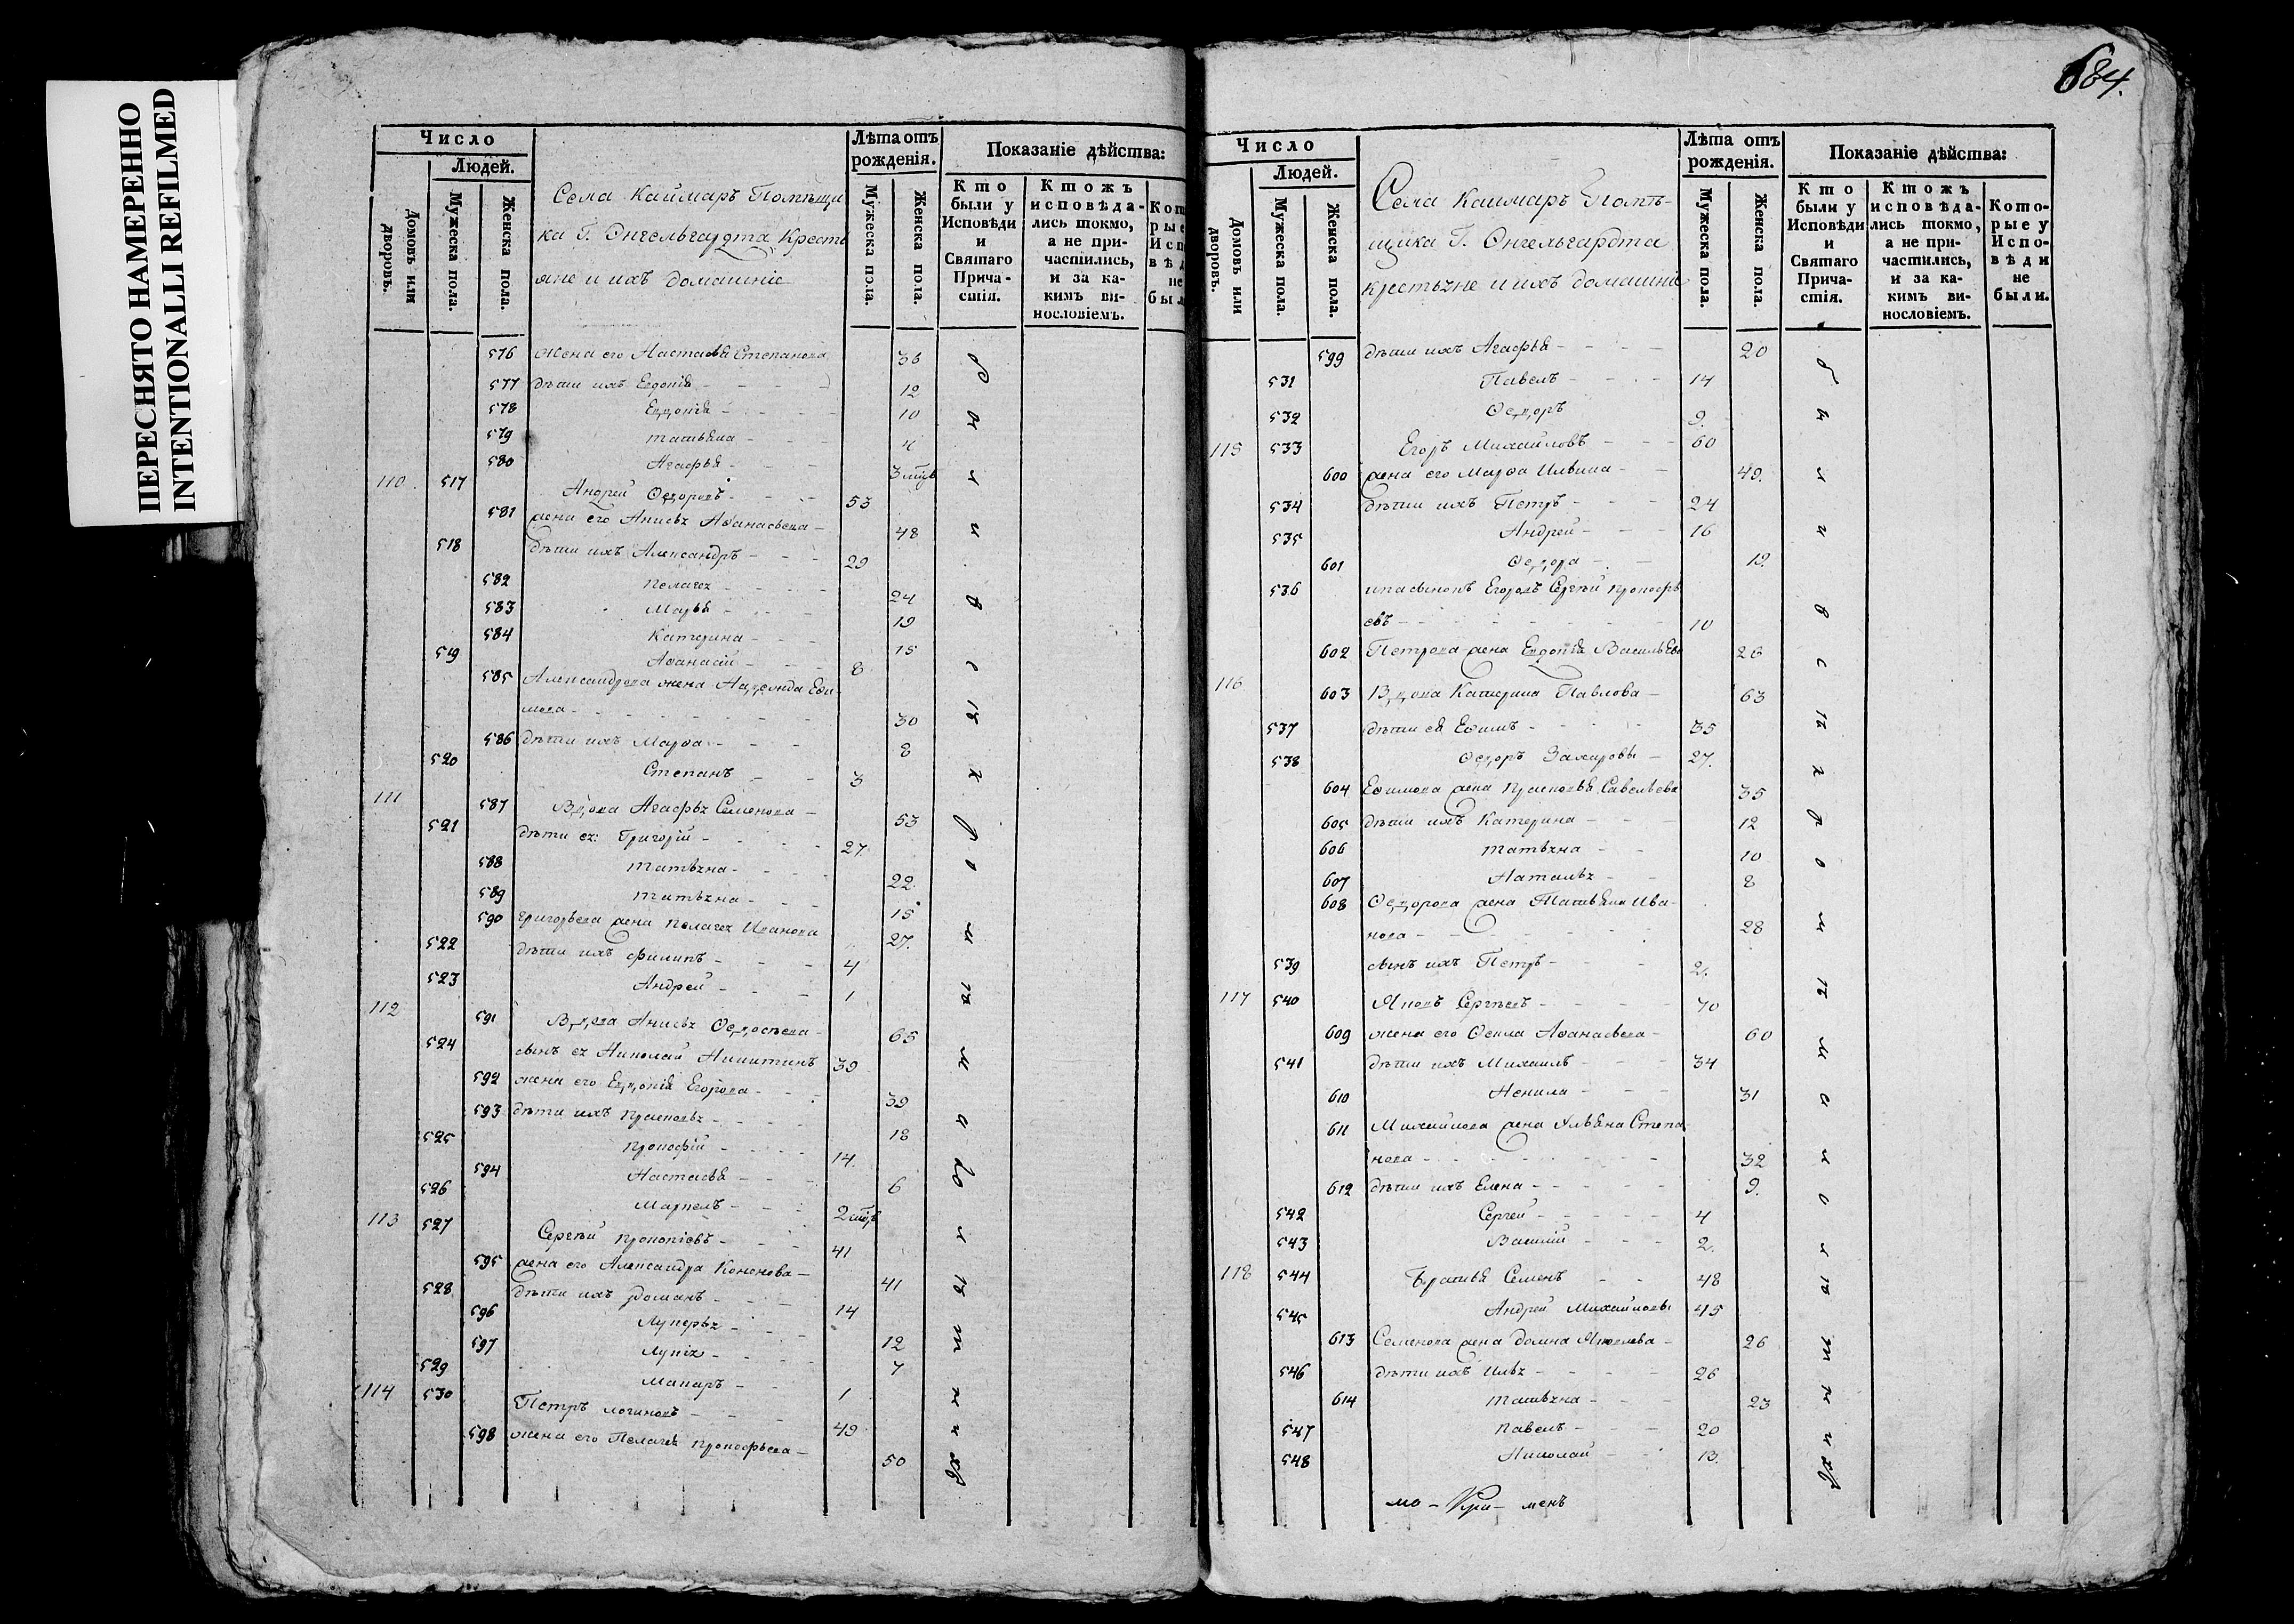 ПЕРЕСНЯТО НАМЕРЕННО
INTENTIONALLI REFILMED
Число
Людей.
Домовъ или дворовъ.
Мужеска пола.
Женска пола.
Села Каймаръ Помѣщи
ка Г. Энгельгардта Кресть
яне и ихъ домашніе
Лѣта отъ рожденія.
Мужеска пола.
Женска пола.
Показаніе дѣйства:
Кто были у Исповѣди и Святаго Прича-стія.
Ктожъ исповѣда-лись токмо, а не при-частились, и за ка-кимъ ви-нословіемъ.
576 жена его Настасья Степанова 36
577 дѣти ихъ Евдокія 12
578 Евдокія 10
579 татьяна 4
580 Агафья 3 мцъ
110 517 Андрей Ѳедоровъ 53
581 жена его Анисья Аѳанасьева 48
518 дѣти ихъ Александръ 29
582 Пелагея 24
583 Марья 19
584 Катерина 15
519 Аѳанасій 8
585 Александрова жена Надежда Ефи-
мова 30
586 дѣти ихъ Марѳа 8
520 Степанъ 3
111 587 Вдова Агафья Семенова 53
521 дѣти ея: Григорій 27
588 татьяна 22
589 татьяна 15
590 григорьева жена Пелагея Иванова 27.
522 дѣти ихъ филипъ 4
523 Андрей 1
112 591 Вдова Анисья Ѳедосѣева 65
524 сынъ ея Николай Никитинъ 39
592 жена его Евдокія Егорова 39
593 дѣти ихъ Прасковья 18
525 Прокофій 14.
594 Настасья 6
526 Маркелъ 2 мцъ
113 527 Сергѣй Прокопіевъ 41
595 жена его Александра Кононова 41
528 дѣти ихъ Романъ 14
596 Лукерья 12
597 Лукія 7
529 Макаръ 1
114 530 Петръ логиновъ 49
598 жена его Пелагея Прокофьева 50
684.
Число
Людей.
Домовъ или дворовъ.
Мужеска пола.
Женска пола.
Села Каймаръ Помѣ-
щика Г. Энгельгардта
крестьяне и ихъ домашніе
Лѣта отъ рожденія.
Мужеска пола.
Женска пола.
Показаніе дѣйства:
Кто были у Исповѣди и Святаго Прича-стія.
Ктожъ исповѣда-лись токмо, а не при-частились, и за ка-кимъ ви-нословіемъ.
Кото-рые у Испо-вѣди не были.
599 дѣти ихъ Агафья 20
531 Павелъ 14
532 Ѳедоръ 9.
115 533 Егоръ Михайловъ 60
600 жена его Марѳа Ильина 49.
534 дѣти ихъ Петръ 24
535 Андрей 16
601 Ѳедора 12
536 Егоровъ Сергѣй Прокофь
евъ 10
602 Петрова жена Евдокія Васильева 26
116 603 Вдова Катерина Павлова 63
537 дѣти ея Ефимъ 35
538 Ѳедоръ Захаровы 27.
604 Ефимова жена Прасковья Савельева 35
605 дѣти ихъ Катерина 12
606 татьяна 10
607 Наталья 8
608 Ѳедорова жена Татьяна Ива-
нова 28
539 сынъ ихъ Петръ 2.
117 540 Яковъ Сергѣевъ 70
609 жена его Ѳекла Аѳанасьева 60
541 дѣти ихъ Михаилъ 34
610 Ненила 31
611 Михайлова жена Ульяна Степа
нова 32
612 дѣти ихъ Елена 9.
542 Сергей 4
543 Василій 2.
118 544 Братья Семенъ 48
545 Андрей Михайловы 45
613 Семенова жена домна Яковлева 26
546 дѣти ихъ Илья 26
614 татьяна 23
547 Павелъ 20
548 Николай 13.